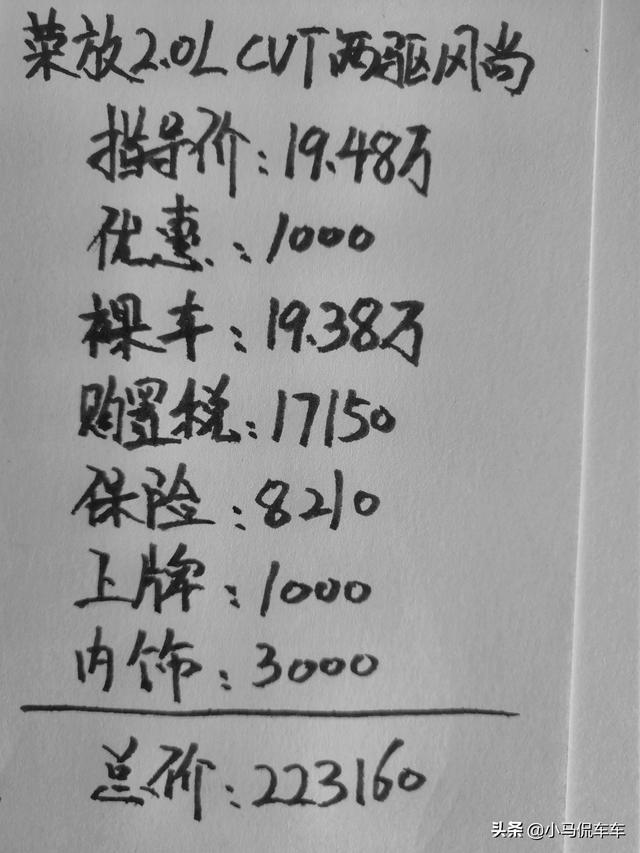 荣放2.0L CVT两驱风尚
指导价：19.48万
优惠：1000
裸车：19.38万
购置税：17150
保险：8210
上牌：1000
内饰：3000
总价：223160
头条 @小马侃车车